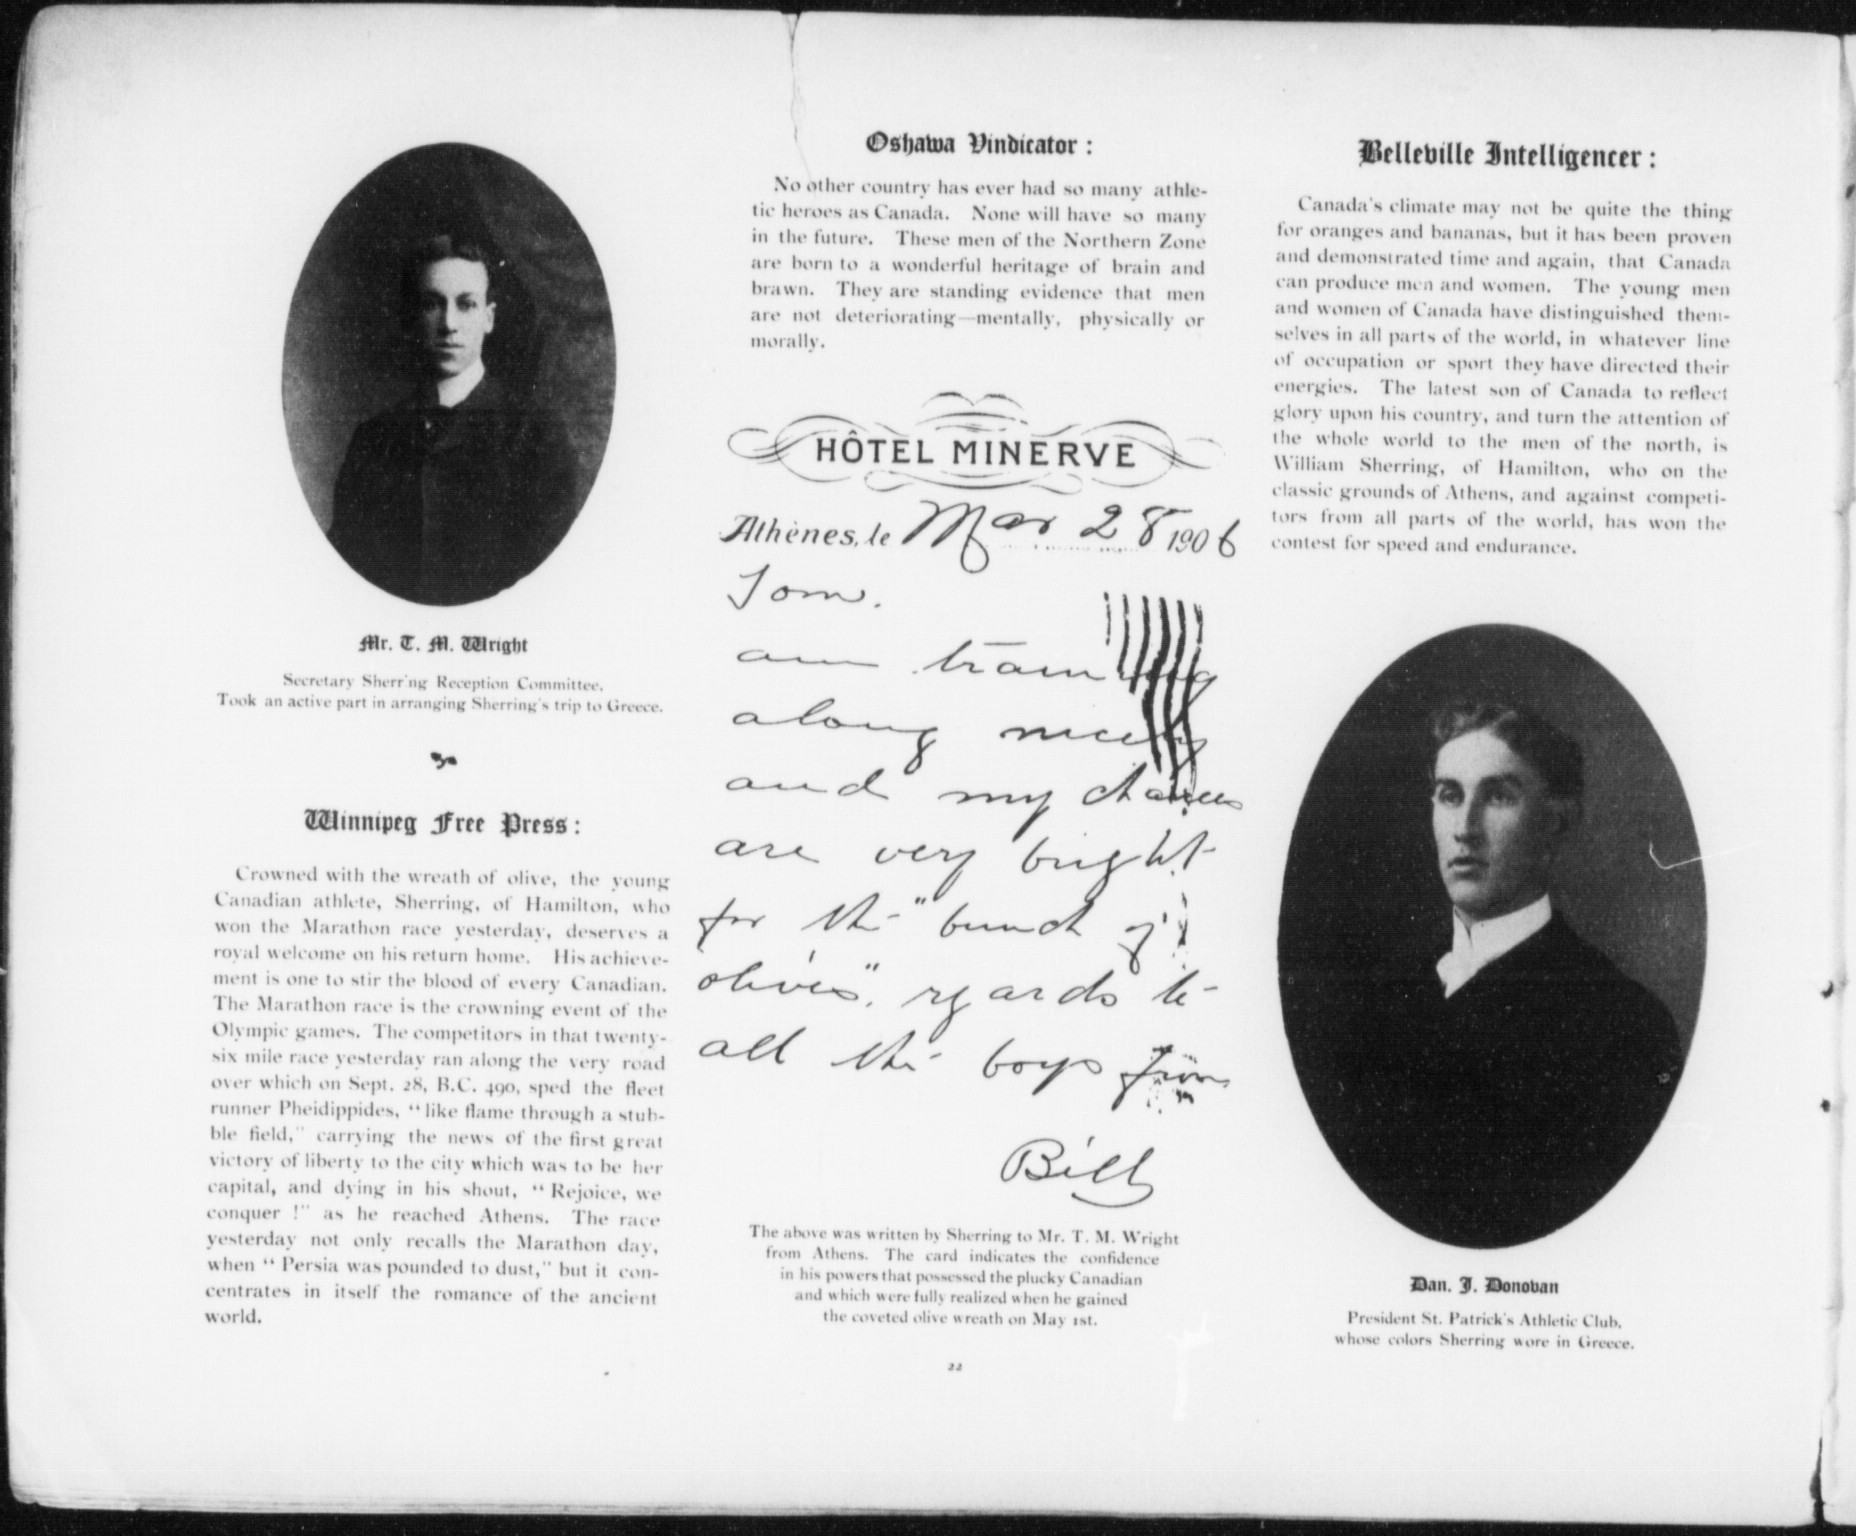 Mr. T. M. Wright
Secretary Sherring Reception Committee.
Took an active part in arranging Sherring's trip to Greece.
Winnipeg Free Press:
Crowned with the wreath of olive, the young
Canadian athlete, Sherring, of Hamilton, who
won the Marathon race yesterday, deserves a
royal welcome on his return home. His achieve-
ment is one to stir the blood of every Canadian.
The Marathon race is the crowning event of the
Olympic games. The competitors in that twenty-
six mile race yesterday ran along the very road
over which on Sept. 28, B.C. 490, sped the fleet
runner Pheidippides, "like flame through a stub-
ble field," carrying the news of the first great
victory of liberty to the city which was to be her
capital, and dying in his shout, "Rejoice, we
conquer!" as he reached Athens. The race
yesterday not only recalls the Marathon day,
when "Persia was pounded to dust," but it con-
centrates in itself the romance of the ancient
world.
Oshawa Vindicator:
No other country has ever had so many athle-
tic heroes as Canada. None will have so many
in the future. These men of the Northern Zone
are born to a wonderful heritage of brain and
brawn. They are standing evidence that men
are not deteriorating—mentally, physically or
morally.
HÔTEL MINERVE
Athènes, le Mar 28 1906
Tom.
am training
along nicely
and my chances
are very bright
for the "bunch of
olives". regards to
all the boys from
Bill
The above was written by Sherring to Mr. T. M. Wright
from Athens. The card indicates the confidence
in his powers that possessed the plucky Canadian
and which were fully realized when he gained
the coveted olive wreath on May 1st.
22
Belleville Intelligencer:
Canada's climate may not be quite the thing
for oranges and bananas, but it has been proven
and demonstrated time and again, that Canada
can produce men and women. The young men
and women of Canada have distinguished them-
selves in all parts of the world, in whatever line
of occupation or sport they have directed their
energies. The latest son of Canada to reflect
glory upon his country, and turn the attention of
the whole world to the men of the north, is
William Sherring, of Hamilton, who on the
classic grounds of Athens, and against competi-
tors from all parts of the world, has won the
contest for speed and endurance.
Dan. J. Donovan
President St. Patrick's Athletic Club,
whose colors Sherring wore in Greece.